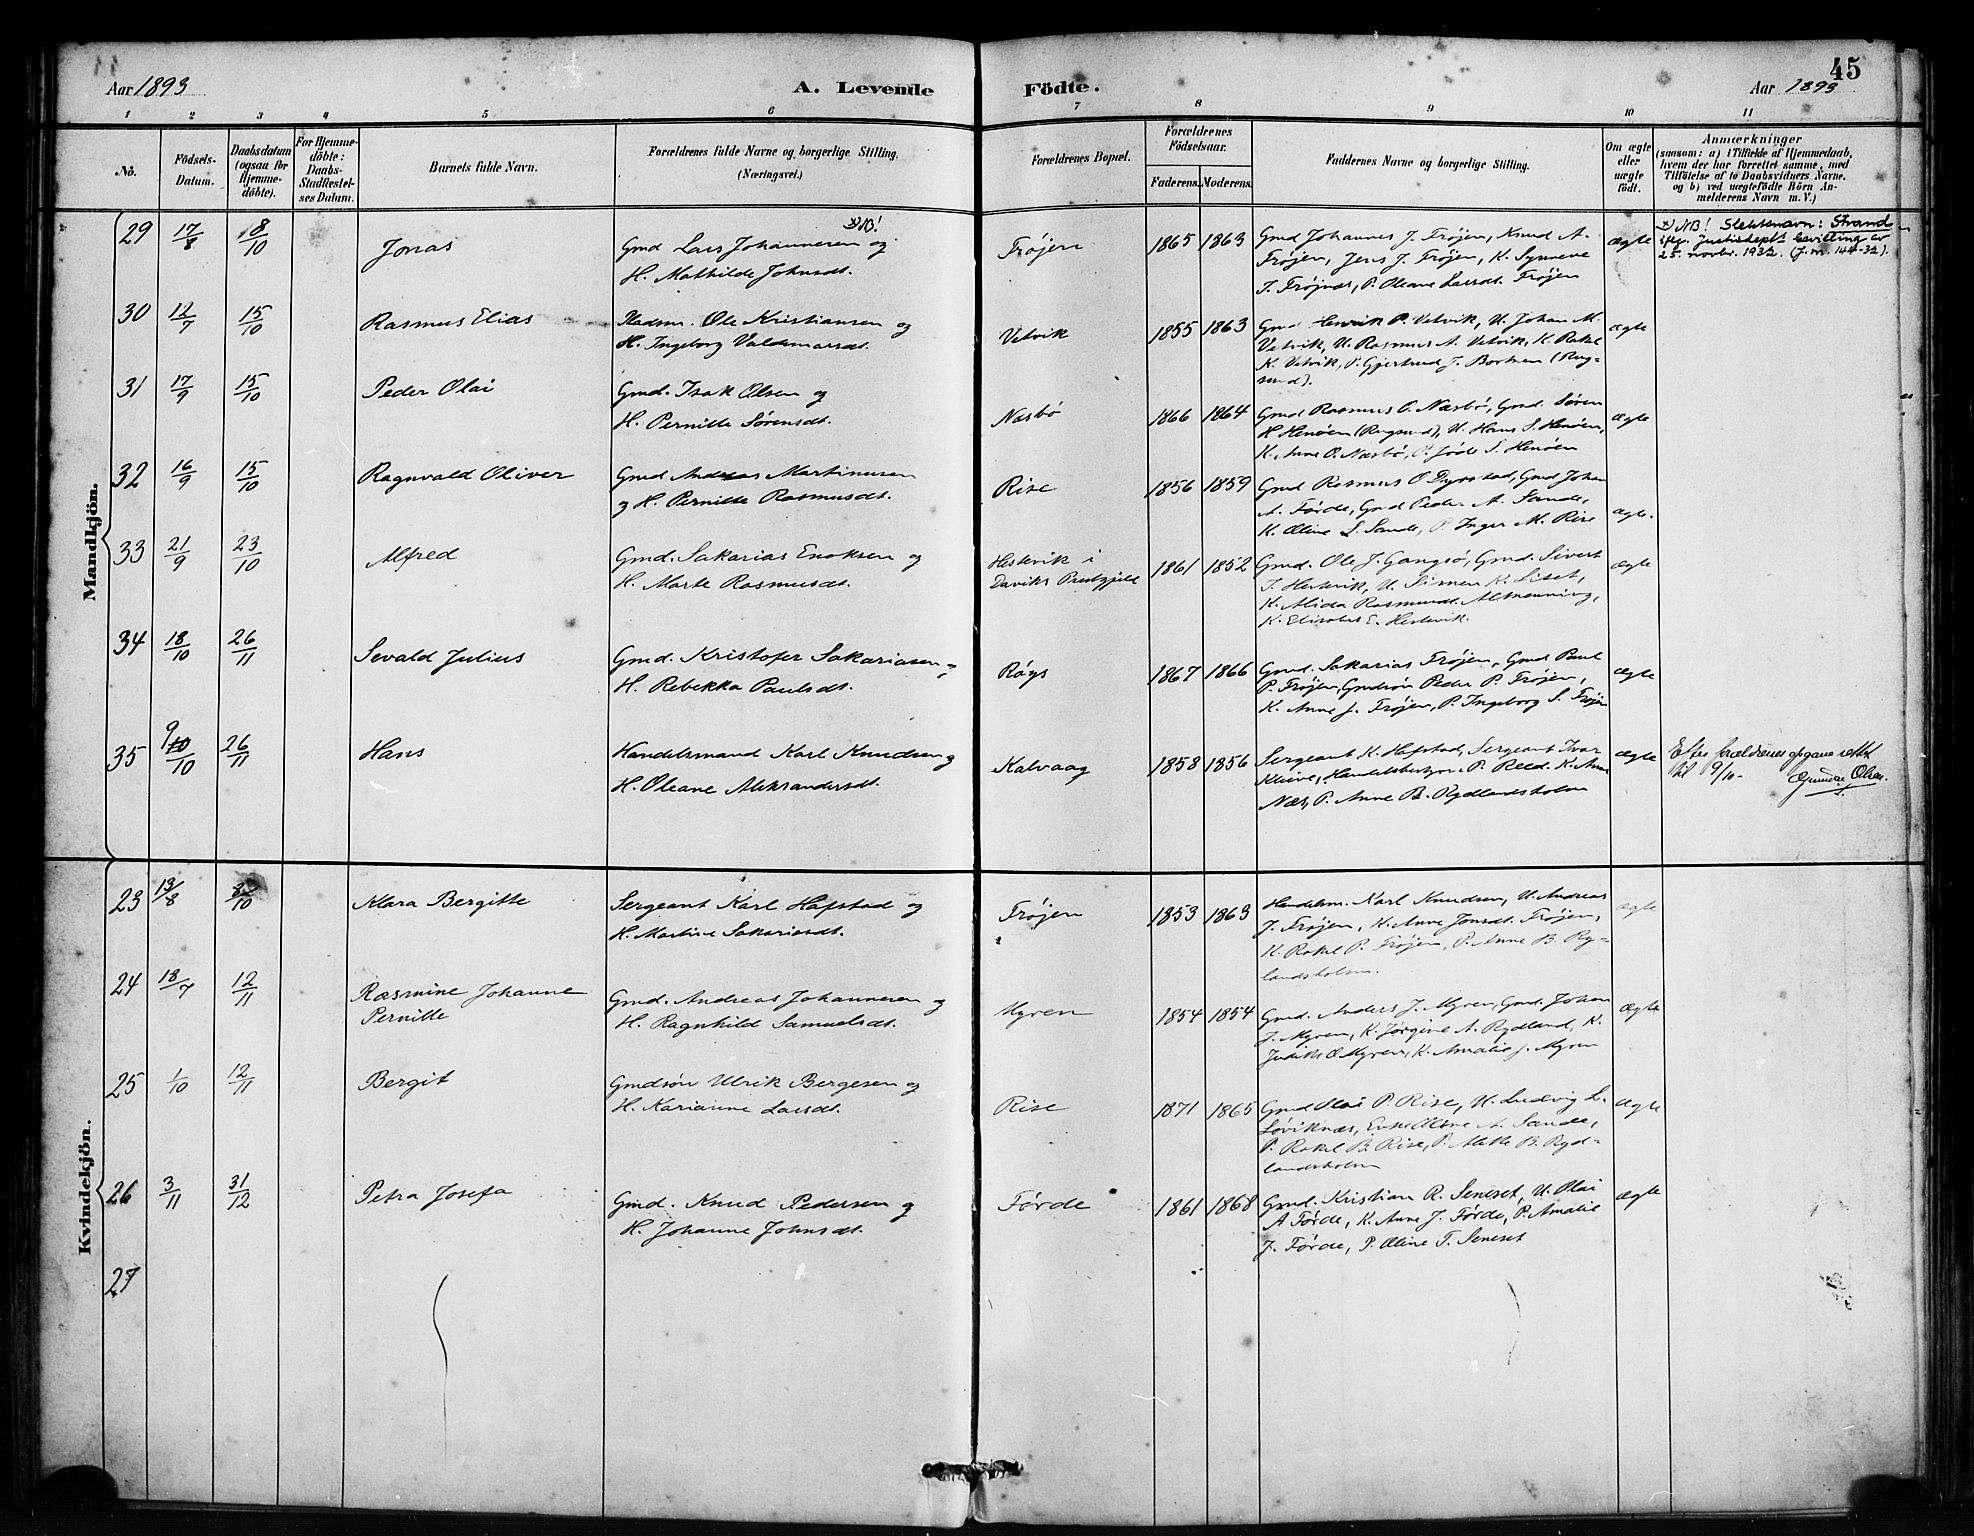 45
Aar 1893
A. Levende
Födte.
Aar 1893
1 2 3 4 5 6 7 8 9 10 11
No.
Födsels-
Datum.
Daabsdatum
(ogsaa for
Hjemme-
döbte).
For Hjemme-
döbte:
Daabs-
Stadfæstel-
ses Datum.
Barnets fulde Navn.
Forældrenes fulde Navne og borgerlige Stilling.
(Næringsvei.)
Forældrenes Bopæl.
Forældrenes
Födselsaar.
Faderens.
Moderens.
Faddernes Navne og borgerlige Stilling.
Om ægte
eller
uægte
födt.
Anmærkninger
(saasom: a) i Tilfælde af Hjemmedaab,
hvem der har forrettet samme, med
Tilföielse af to Daabsvidners Navne.
og b) ved uægtefödte Börn An-
melderens Navn m. V.)
Mandkjön.
29 17/8 8/10 Jonas
x) NB!
Gmd Lars Johannesen og
H. Mathilde Johnsdt.
Frøjen 1865 1863
Gmd Johannes J. Frøjen, Knud A.
Frøjen, Jens J. Frøjen, K. Synneve
T. Frøjnæs, P. Oleane Larsdt. Frøjen
ægte
x) NB! Slektsnavn: Strand
ifg. Justisdepts bevilling av
25. novbr. 1932. (J.nr. 144-32).
30 12/7 15/10 Rasmus Elias
Pladsm. Ole Kristiansen og
H. Ingeborg Valdemarsdt.
Vetvik 1855 1863
Gmd Henrik P. Vetvik, U. Johan M.
Vetvik, U. Rasmus A. Vetvik, K. Rakel
K. Vetvik, P. Gjertrud J. Bortnen (Rug-
sund).
ægte
31 17/9 15/10 Peder Olai
Gmd. Isak Olsen og
H. Pernille Sørensdt.
Næsbø 1866 1864
Gmd Rasmus O. Næsbø, Gmd. Søren
H Henøen (Rugsund), U. Hans S. Henøen,
K. Anne O. Næsbø, P. Jøde S. Henøen
ægte
32 16/9 15/10 Ragnvald Oliver
Gmd Andreas Martinusen
og H. Pernille Rasmusdt.
Rise 1856 1859
Gmd Rasmus O Dyrstad, Gmd Johan
A. Førde, Gmd Peder A. Sande,
K. Oline S. Sande, P. Inger M. Rise
ægte.
33 21/9 23/10 Alfred
Gmd. Sakarias Enoksen og
H. Marte Rasmusdt.
Hestevik i
Daviks Præstegjeld
1861 1852
Gmd. Ole J. Gangsø, Gmd. Sivert
T. Hestevik, U. Simen K. Liset,
K. Alida Rasmusdt. Almenning,
K. Elisabet E. Hestevik.
ægte
34 18/10 26/11 Sevald Julius
Gmd. Kristofer Sakariasen og
H. Rebekka Paulsdt.
Røys 1867 1866
Gmd. Sakarias Frøjen, Gmd Paul
P. Frøjen, Gmdsøn Peder P. Frøjen,
K. Anne J. Frøjen, P. Ingeborg S. Frøjen
ægte
35 9/10 26/11 Hans
Handelsmand Karl Knudsen og
H. Oleane Aleksandersdt.
Kalvaag 1858 1856
Sergeant K. Hafstad, Sergeant Ivar
Kleive, Handelsbestyr. P. Reed. K. Anne
Næs, P. Anne B. Rydlandsholm
ægte
Efter forældrenes opgave rettet
til 9/10 -
Olsen.
Kvindekjön.
23 13/8 8/10 Klara Bergitte
Sergeant Karl Hafstad og
H. Martine Sakariasdt.
Frøjen 1853 1863
Handelsm. Karl Knudsen, U. Andreas
J. Frøjen, K. Anne Jonsdt. Frøjen,
K. Rakel P. Frøjen, P. Anne B. Ryd-
landsholm.
ægte
24 18/7 12/11 Rasmine Johanne
Pernille
Gmd. Andreas Johannesen og
H. Ragnhild Samuelsdt.
Myren 1854 1854
Gmd. Anders J. Myren, Gmd. Johan
J. Myren, K. Jørgine A. Rydland, K.
Judith O Myren, K. Amalie J. Myren
ægte
25 1/10 12/11 Bergit
Gmdsøn Ulrik Bergesen og
H. Karianne Larsdt.
Rise 1871 1865
Gmd Olai P. Rise, U. Ludvig L.
Løviknæs, Enke Oline A. Sande,
P. Rakel B. Rise, P. Alette B. Ryd-
landsholm
ægte
26 3/11 31/12 Petra Josefa
Gmd. Knud Pedersen og
H. Johanne Johnsdt.
Førde 1861 1868
Gmd. Kristian R. Seneset, U. Olai
A Førde, K. Anne J. Førde, P. Amalie
J. Førde, P. Oline T. Seneset
ægte
27